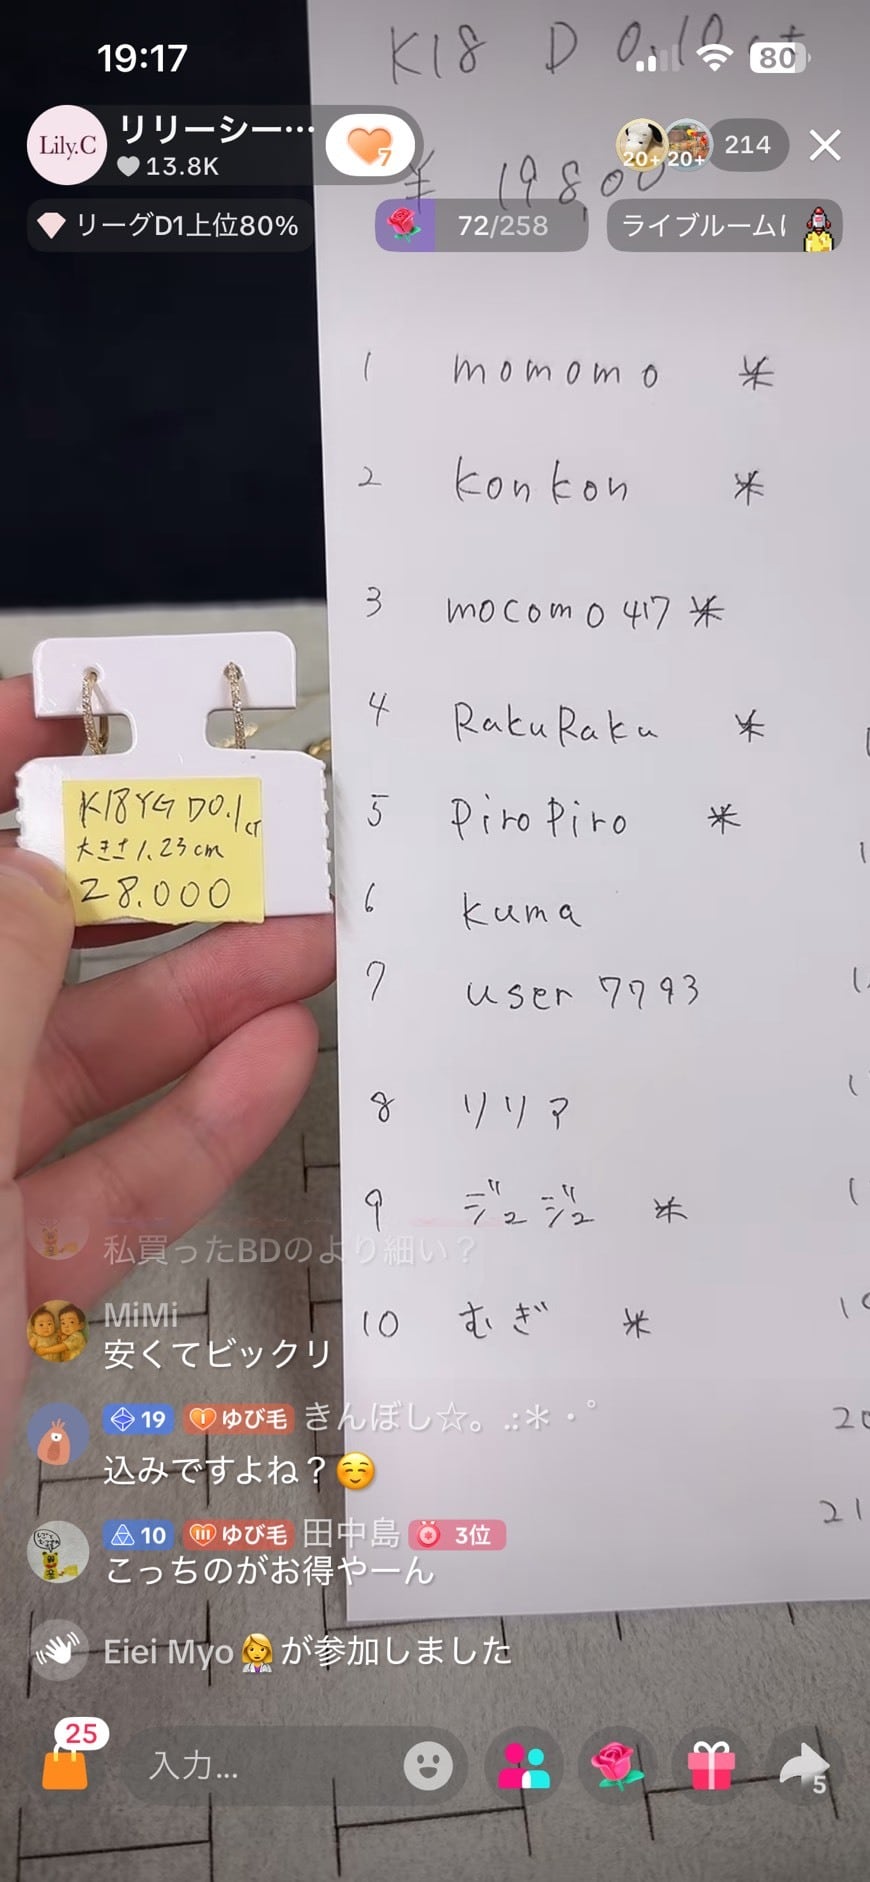 K18 D 0.10ct
19:17
80
Lily.C
リリーシー…
13.8K
7
20+
20+
214
¥ 19,800
リーグD1上位80%
72/258
ライブルームに
1 momomo ＊
2 konkon ＊
3 mocomo417 ＊
4 RakuRaku ＊
5 PiroPiro ＊
6 kuma
7 user7793
8 リリア
9 ジュジュ ＊
10 むぎ ＊
20
21
K18YG D0.1ct
大きさ1.23cm
28.000
私買ったBDのより細い？
MiMi
安くてビックリ
19 I ゆび毛 きんぼし☆。.:＊・゜
込みですよね？☺️
10 III ゆび毛 田中島 3位
こっちのがお得やーん
Eiei Myo👩‍⚕️が参加しました
25
入力...
5